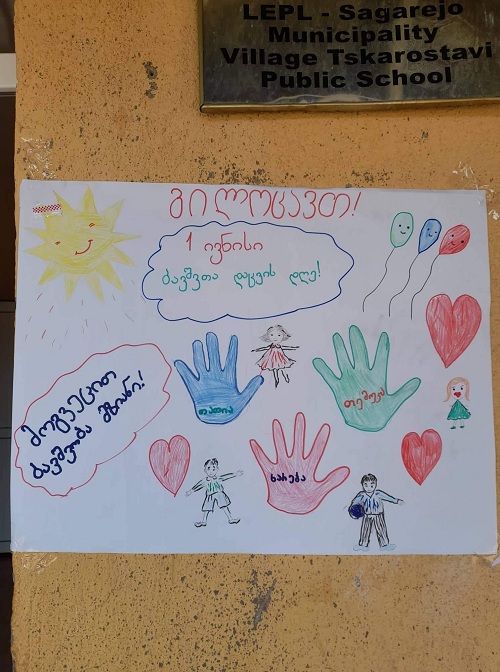 LEPL - Sagarejo
Municipality
Village Tskarostavi
Public School
გილოცავთ!
1 ივნისი
ბავშვთა დაცვის დღე!
მოგვეცით
ბავშვობა მზიანი!
თათია
თემუკა
ხარება